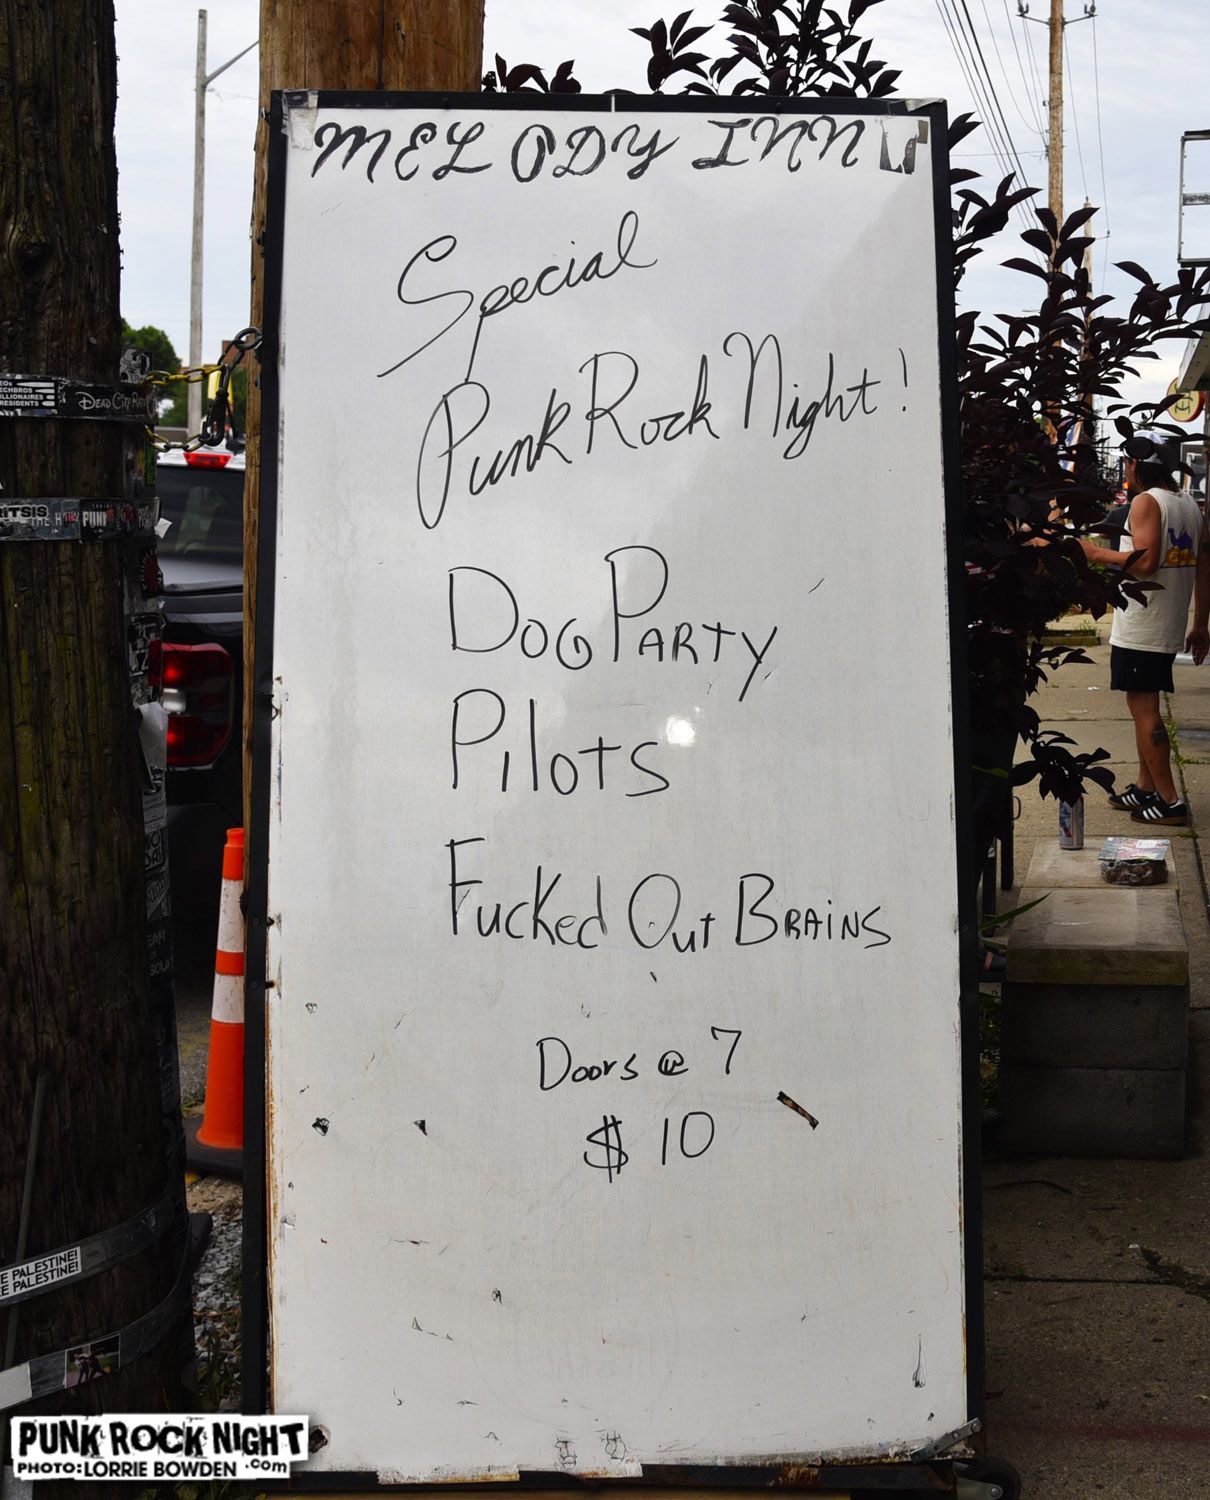 MELODY INN
Special
Punk Rock Night!
Dog Party
Pilots
Fucked Out Brains
Doors @ 7
$10
TECHBROS
BILLIONAIRES
PRESIDENTS
DEAD CITY
PUNK
E PALESTINE!
E PALESTINE!
PUNK ROCK NIGHT
PHOTO: LORRIE BOWDEN .com